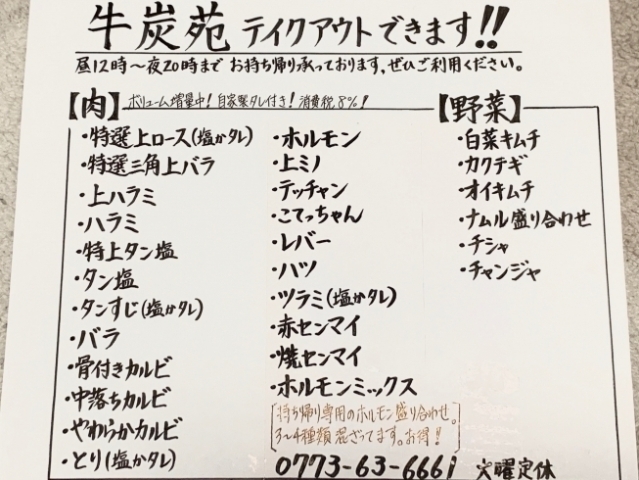 牛炭苑 テイクアウトできます!!
昼12時～夜20時まで お持ち帰り承っております、ぜひご利用ください。
【肉】ボリューム増量中！自家製タレ付き！消費税8%！
・特選上ロース(塩かタレ)
・特選三角上バラ
・上ハラミ
・ハラミ
・特上タン塩
・タン塩
・タンすじ(塩かタレ)
・バラ
・骨付きカルビ
・中落ちカルビ
・やわらかカルビ
・とり(塩かタレ)
・ホルモン
・上ミノ
・テッチャン
・こてっちゃん
・レバー
・ハツ
・ツラミ(塩かタレ)
・赤センマイ
・焼センマイ
・ホルモンミックス
持ち帰り専用のホルモン盛り合わせ。
3～4種類混ざってます。お得！
【野菜】
・白菜キムチ
・カクテギ
・オイキムチ
・ナムル盛り合わせ
・チシャ
・チャンジャ
0773-63-6661 火曜定休